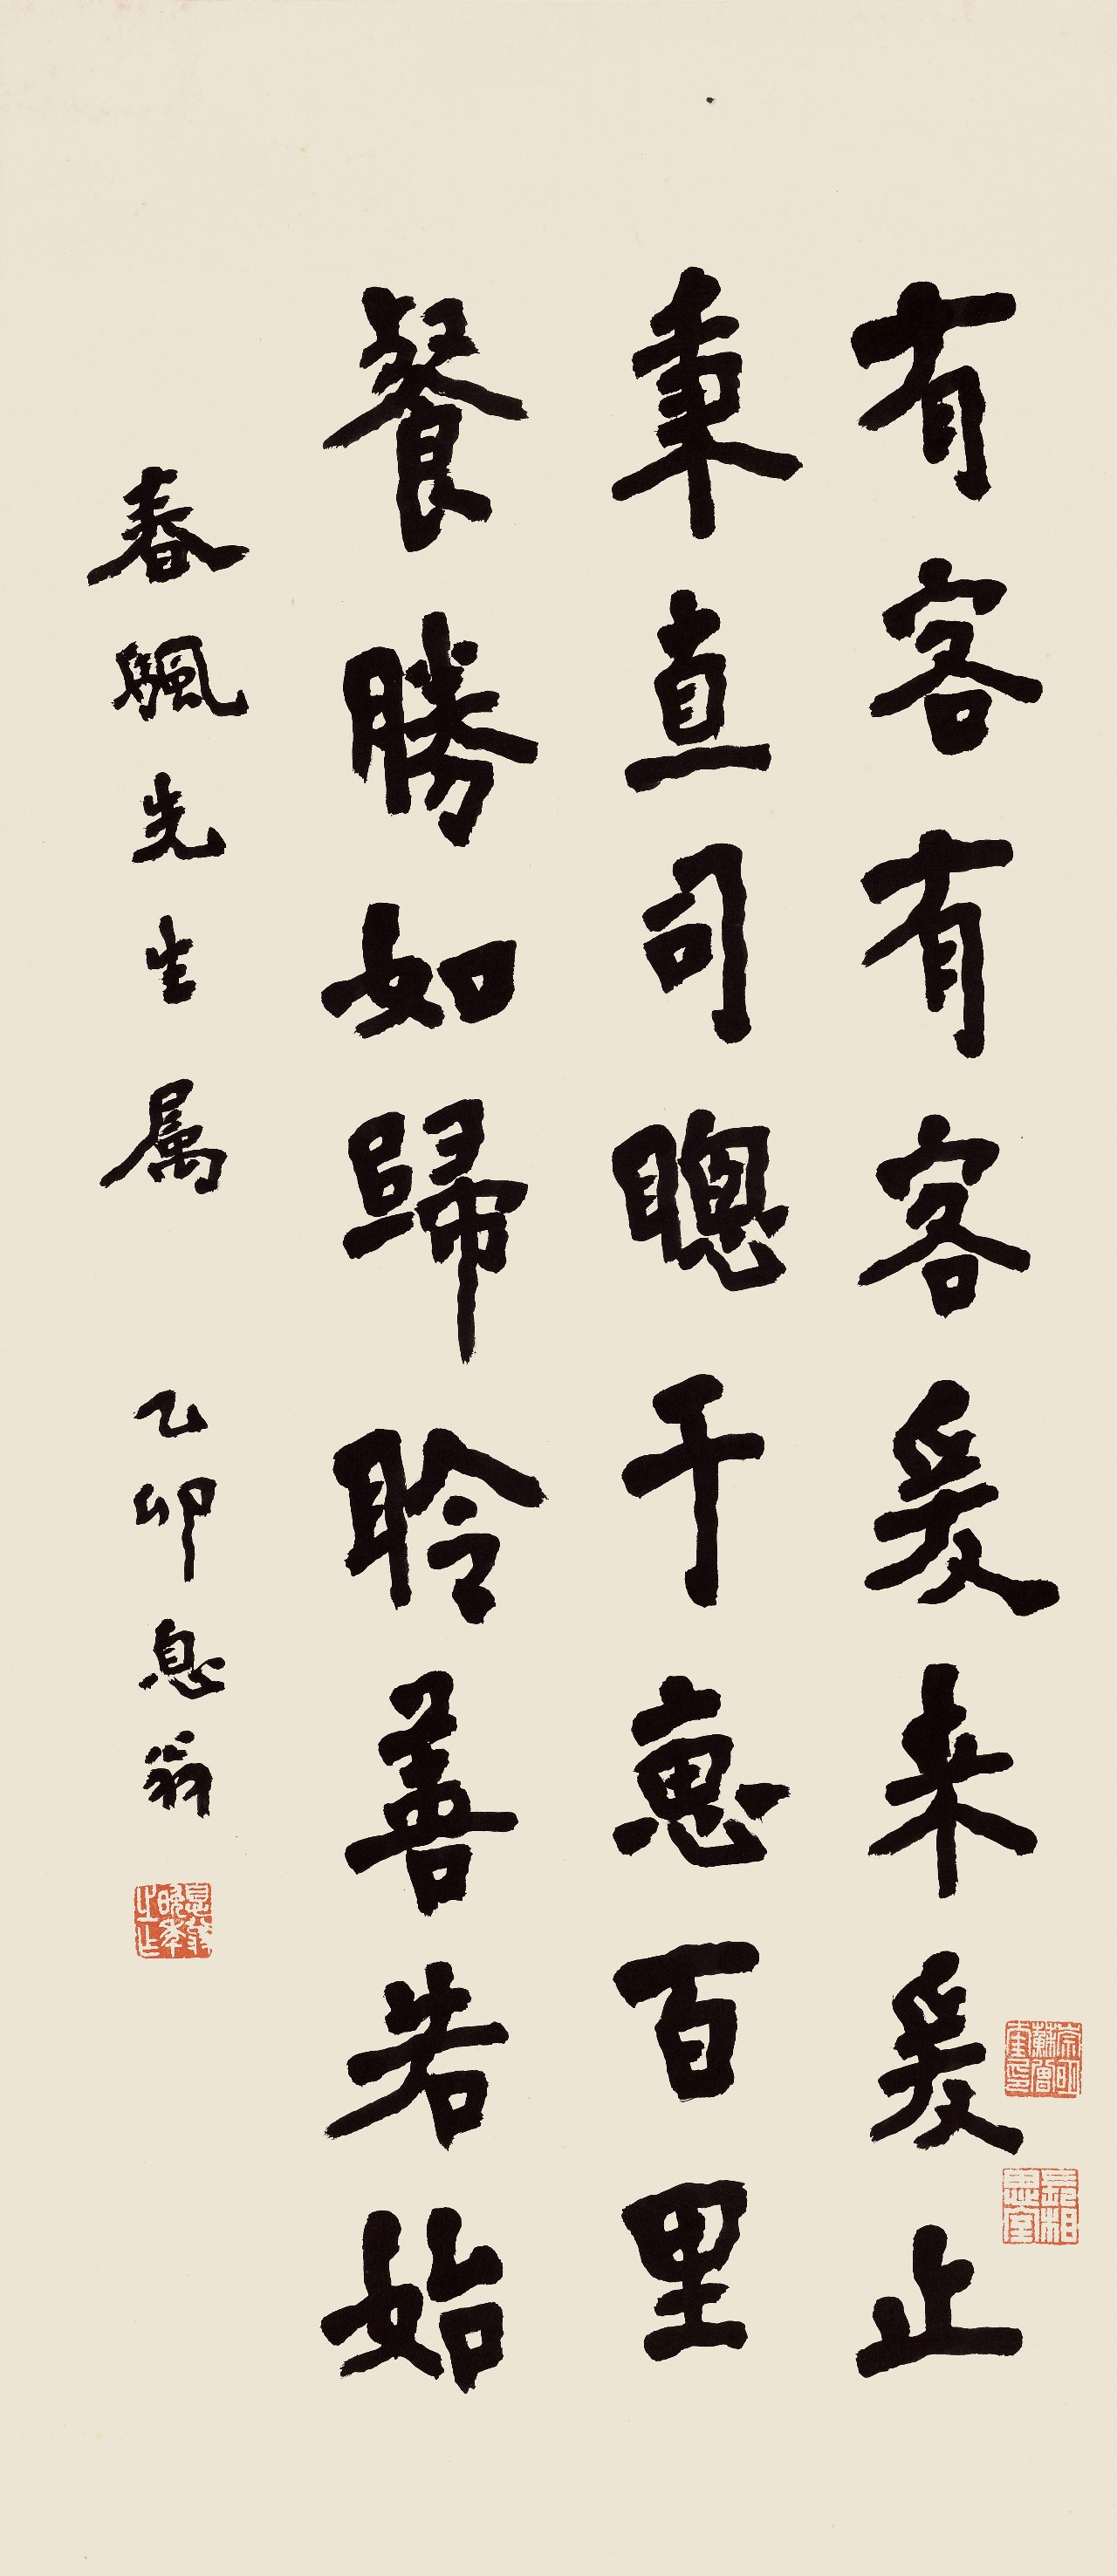 有客有客爰来爰止
秉直司聰于惠百里
飧勝如歸聆善若始
春颿先生属　乙卯息翁